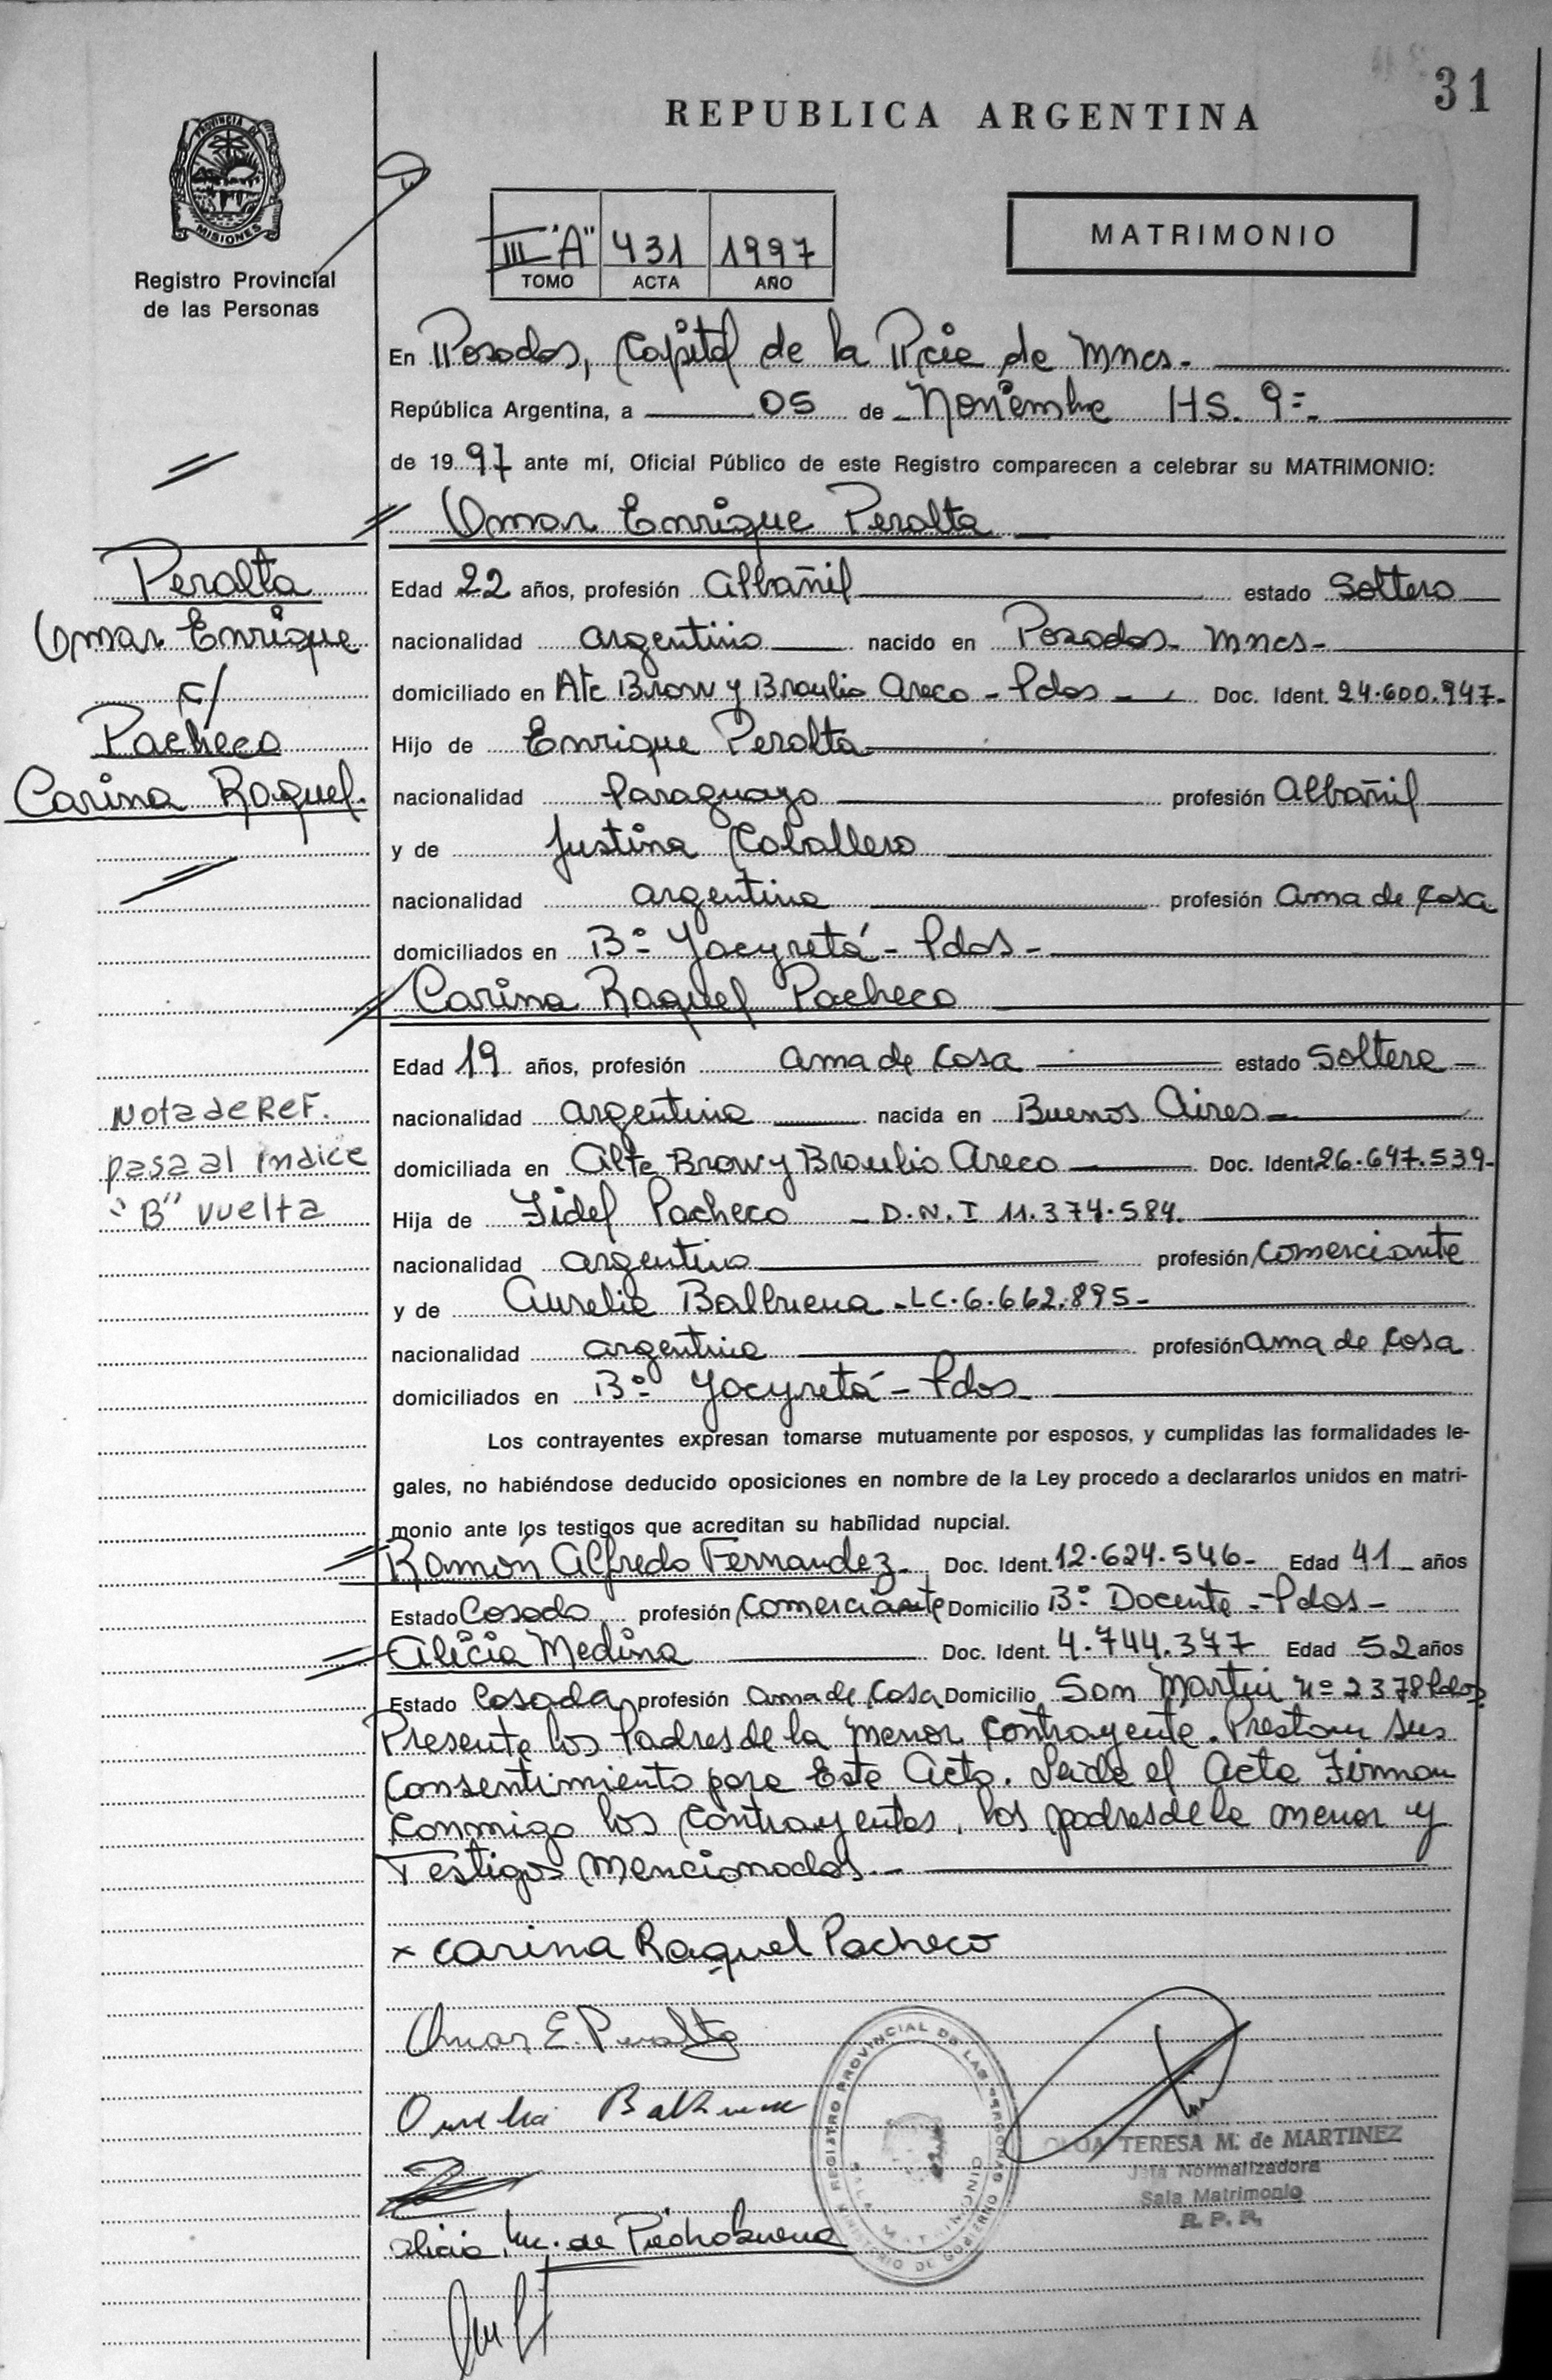 31
REPUBLICA ARGENTINA
PROVINCIA DE
MISIONES
Registro Provincial
de las Personas
III "A" 431 1997
TOMO ACTA AÑO
MATRIMONIO
En Posadas, Capital de la Pcia de Mnes.
República Argentina, a 05 de Noviembre HS. 9=
de 1997 ante mí, Oficial Público de este Registro comparecen a celebrar su MATRIMONIO:
Omar Enrique Peralta
Peralta
Omar Enrique
c/
Pacheco
Carina Raquel.
Edad 22 años, profesión Albañil estado Soltero
nacionalidad argentino nacido en Posadas- Mnes-
domiciliado en Ate Brow y Braulio Areco - Pdas - Doc. Ident. 24.600.947-
Hijo de Enrique Peralta
nacionalidad Paraguayo profesión Albañil
y de Justina Caballero
nacionalidad argentina profesión ama de casa
domiciliados en B° Yacyretá - Pdas -
Carina Raquel Pacheco
Edad 19 años, profesión ama de casa estado Soltera
Nota de Ref.
pasa al indice
"B" vuelta
nacionalidad argentina nacida en Buenos Aires
domiciliada en Alte Brow y Braulio Areco Doc. Ident. 26.647.539-
Hija de Fidel Pacheco - D.N.I 11.374.584.
nacionalidad argentino profesión comerciante
y de Aurelia Balbuena - LC. 6.662.895-
nacionalidad argentina profesión ama de casa
domiciliados en B° Yacyretá - Pdas
Los contrayentes expresan tomarse mutuamente por esposos, y cumplidas las formalidades le-
gales, no habiéndose deducido oposiciones en nombre de la Ley procedo a declararlos unidos en matri-
monio ante los testigos que acreditan su habilidad nupcial.
Ramón Alfredo Fernandez. Doc. Ident. 12.624.546- Edad 41 años
Estado Casado profesión comerciante Domicilio B° Docente - Pdas -
Alicia Medina Doc. Ident. 4.744.377 Edad 52 años
Estado Casada profesión ama de casa Domicilio San Martin n° 2378 Pdas
Presente los Padres de la menor contrayente. Prestan sus
consentimiento para Este Acto. Leida el Acta Firman
conmigo los contrayentes, los padres de la menor y
Testigos mencionados.-
x Carina Raquel Pacheco
Omar E. Peralta
Aurelia Balbuena
Alicia M. de Piedrabuena
REGISTRO PROVINCIAL DE LAS PERSONAS
MINISTERIO DE GOBIERNO
SALA MATRIMONIO
OLGA TERESA M. de MARTINEZ
Jefa Normalizadora
Sala Matrimonio
R. P. P.